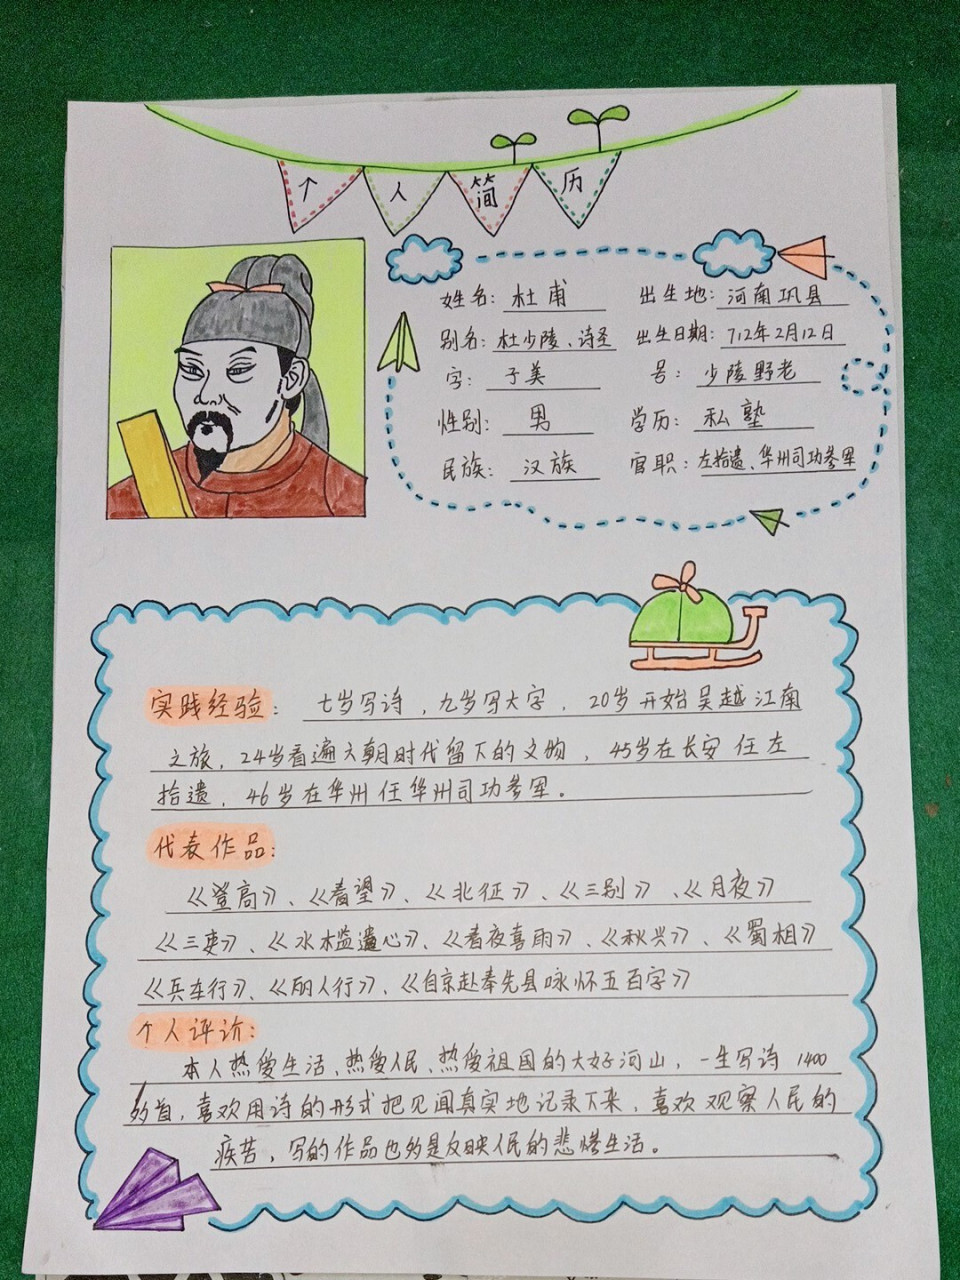 个人简历
姓名：杜甫 出生地：河南巩县
别名：杜少陵、诗圣 出生日期：712年2月12日
字：子美 号：少陵野老
性别：男 学历：私塾
民族：汉族 官职：左拾遗、华州司功参军
实践经验：七岁写诗，九岁写大字，20岁开始吴越江南
之旅，24岁看遍六朝时代留下的文物，45岁在长安任左
拾遗，46岁在华州任华州司功参军。
代表作品：
《登高》、《春望》、《北征》、《三别》、《月夜》
《三吏》、《水槛遣心》、《春夜喜雨》、《秋兴》、《蜀相》
《兵车行》、《丽人行》、《自京赴奉先县咏怀五百字》
个人评价：
本人热爱生活、热爱人民、热爱祖国的大好河山，一生写诗1400
多首，喜欢用诗的形式把见闻真实地记录下来，喜欢观察人民的
疾苦，写的作品也多是反映人民的悲惨生活。